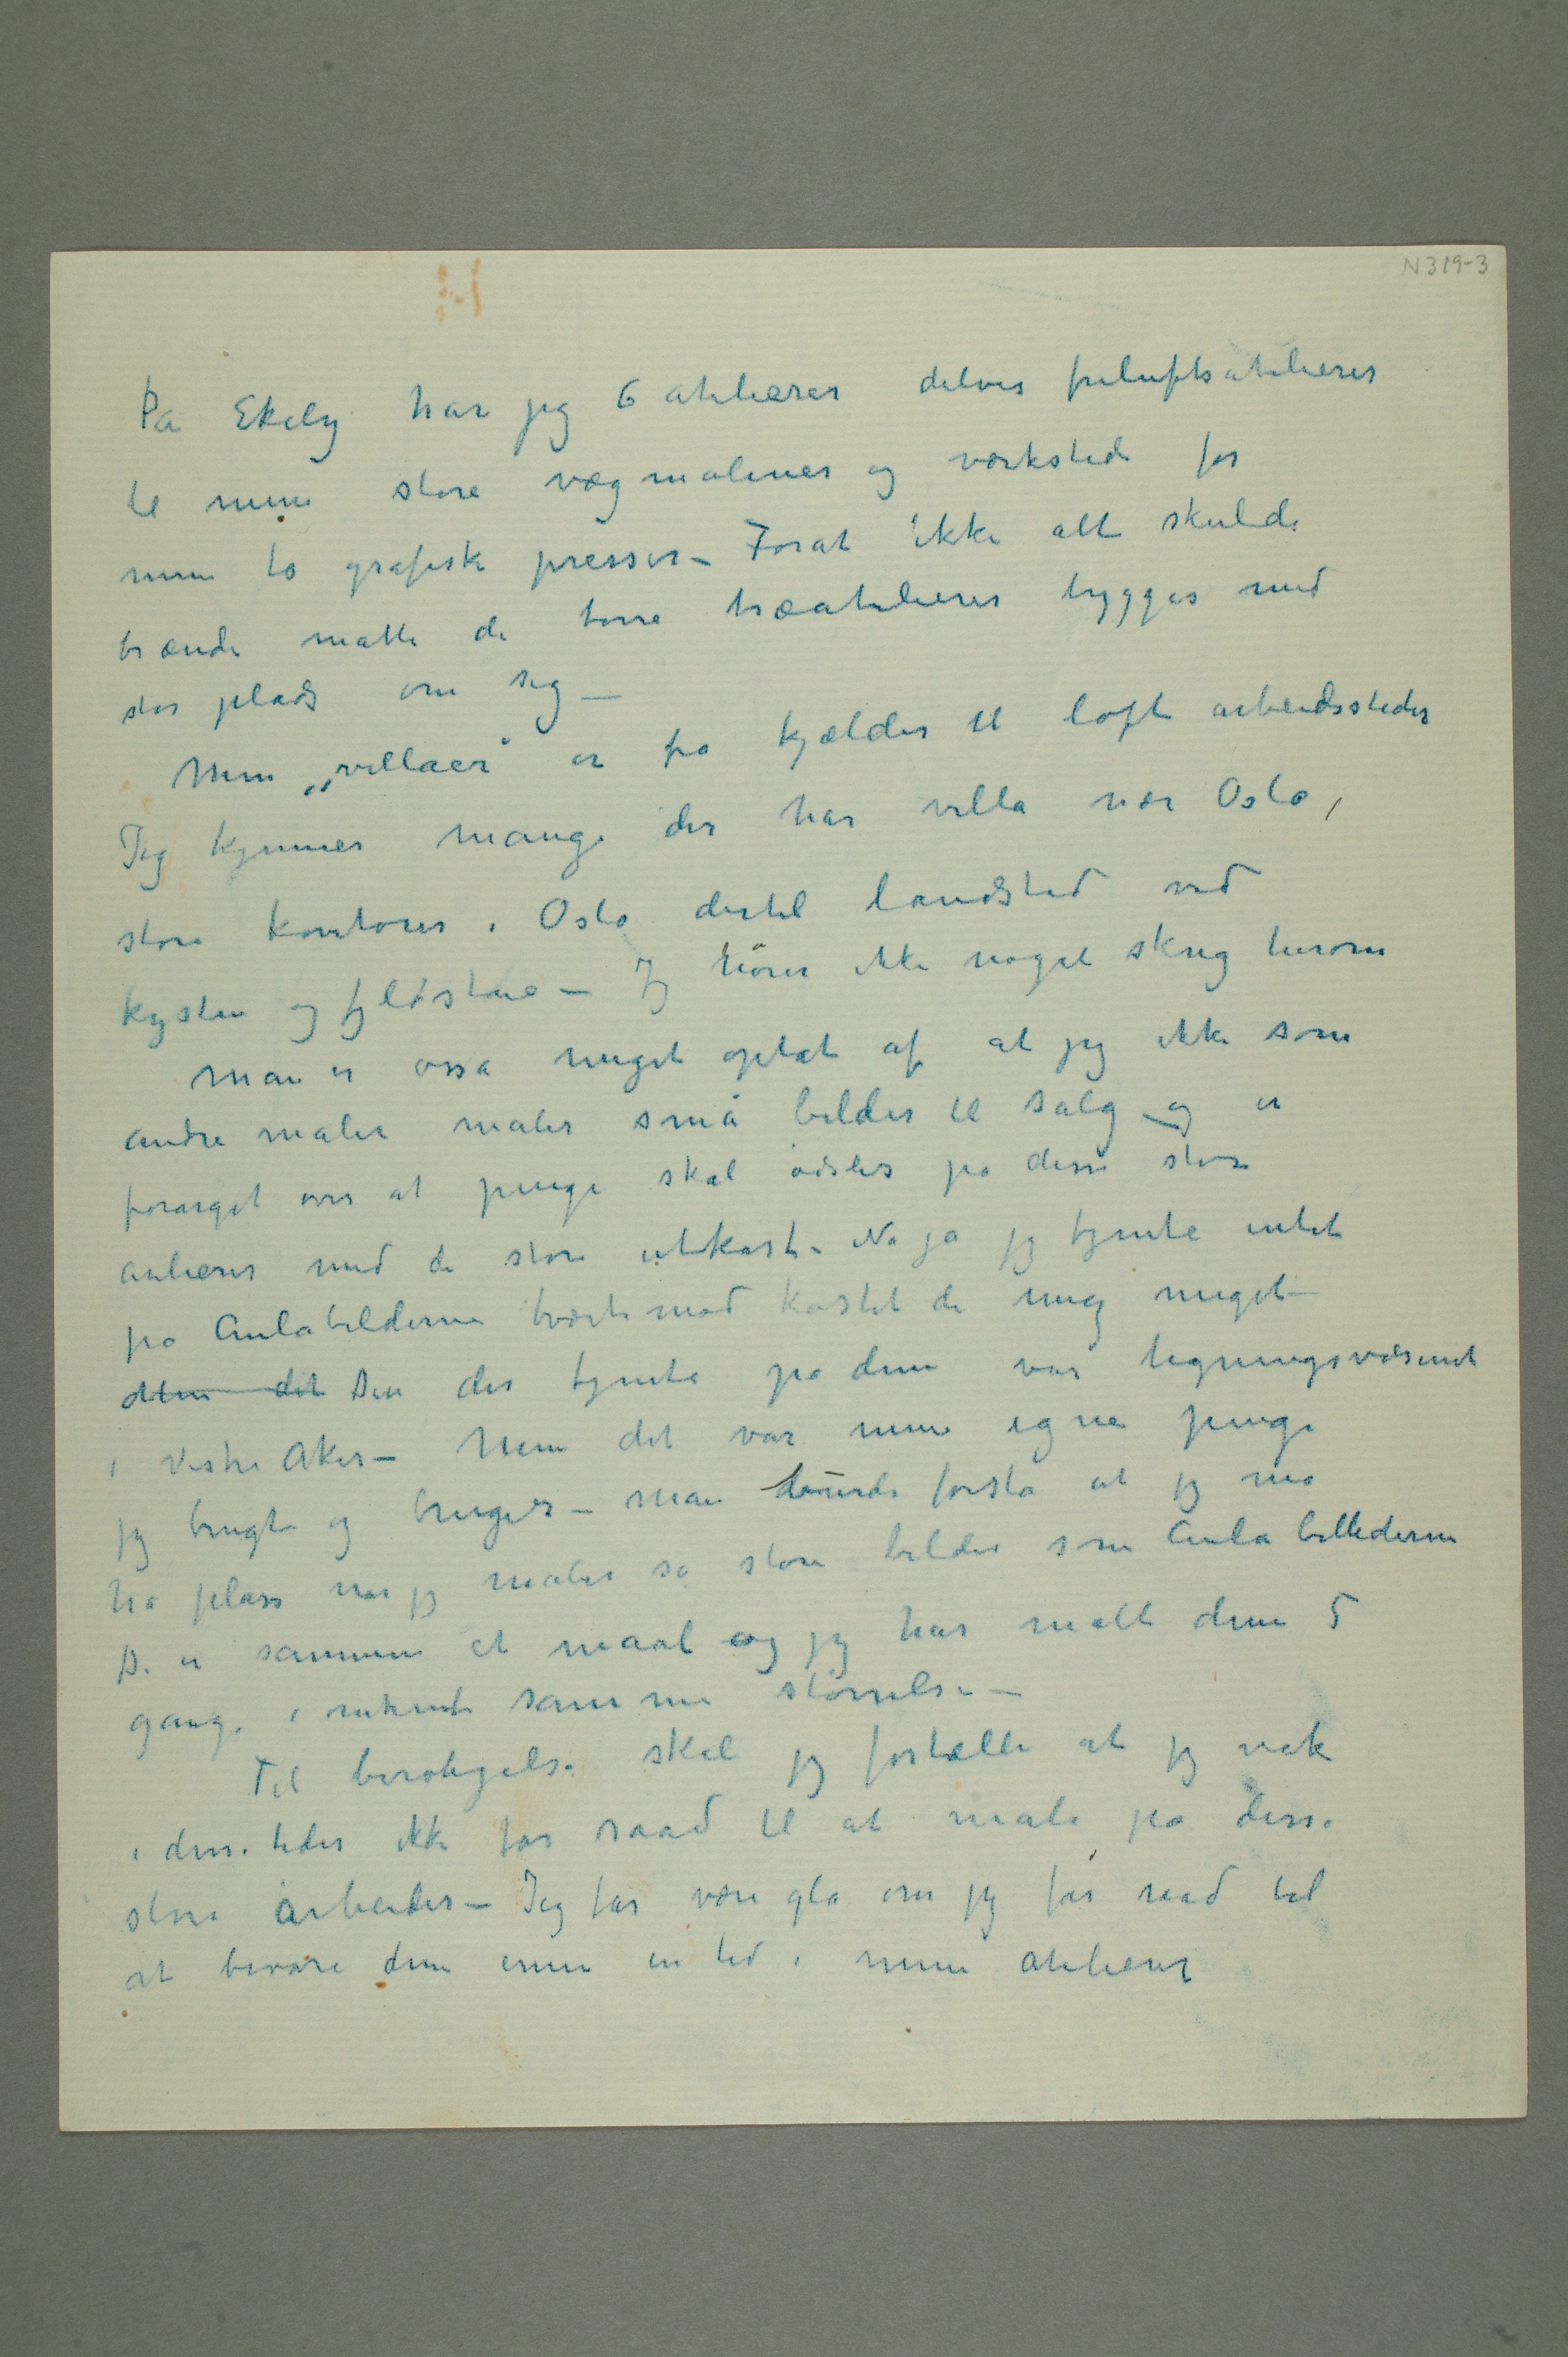 N 319-3
På Ekely har jeg 6 atelierer delvis friluftsatelierer
til mine store vægmalerier og værksteder for
mine to grafiske presser – Forat ikke alt skulde
brænde måtte de tørre træatelierer bygges med
stor plads om sig –
Mine „villaer" er fra kjælder til loft arbeidssteder
Jeg kjenner mange der har villa nær Oslo,
store kontorer i Oslo dertil landsted ved
kysten og fjeldstue – Jeg hører ikke noget skrig herom
Man er osså meget optat af at jeg ikke som
andre maler maler små bilder til salg – og er
forarget over at penge skal ødsles på disse store
atelierer med de store utkast. Na ja jeg tjente intet
på Aulabilderne tværtimod kostet de mig meget –
den der tjente på dem var ligningsvæsenet
i Vestre Aker – Men det var mine egne penge
jeg brugte og bruger – Man burde forstå at jeg må
ha plass når jeg maler så store bilder som Aulabillederne
De er sammen et maal og jeg har malt dem 5
gange i omtrent samme størrelse –
Til beroligelse skal jeg fortælle at jeg nok
i disse tider ikke får raad til at male på disse
store arbeider – Jeg får være gla om jeg får raad til
at bevare dem ennu en tid i mine atelierer